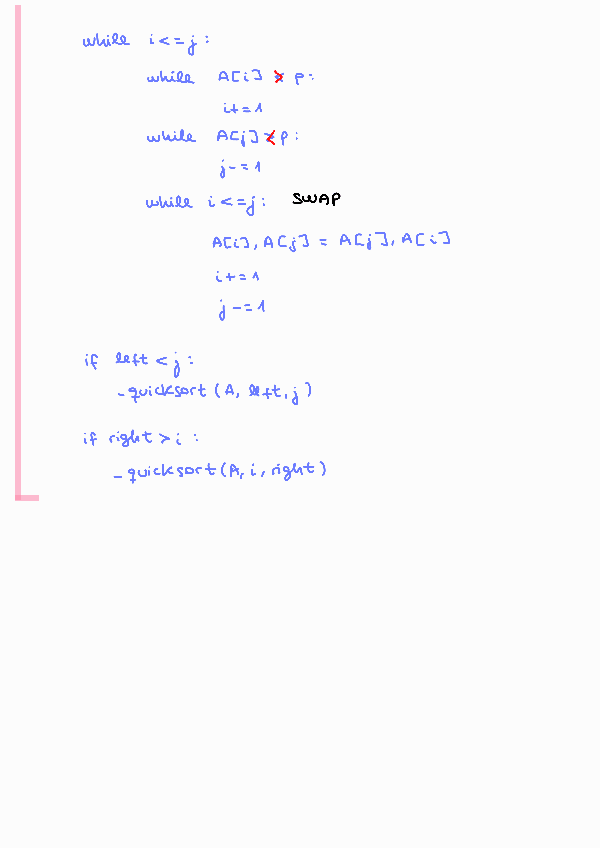 while i <= j :
while A[i] > p :
i += 1
while A[j] < p :
j -= 1
while i <= j : SWAP
A[i], A[j] = A[j], A[i]
i += 1
j -= 1
if left < j :
_quicksort (A, left, j)
if right > i :
_quicksort (A, i, right)